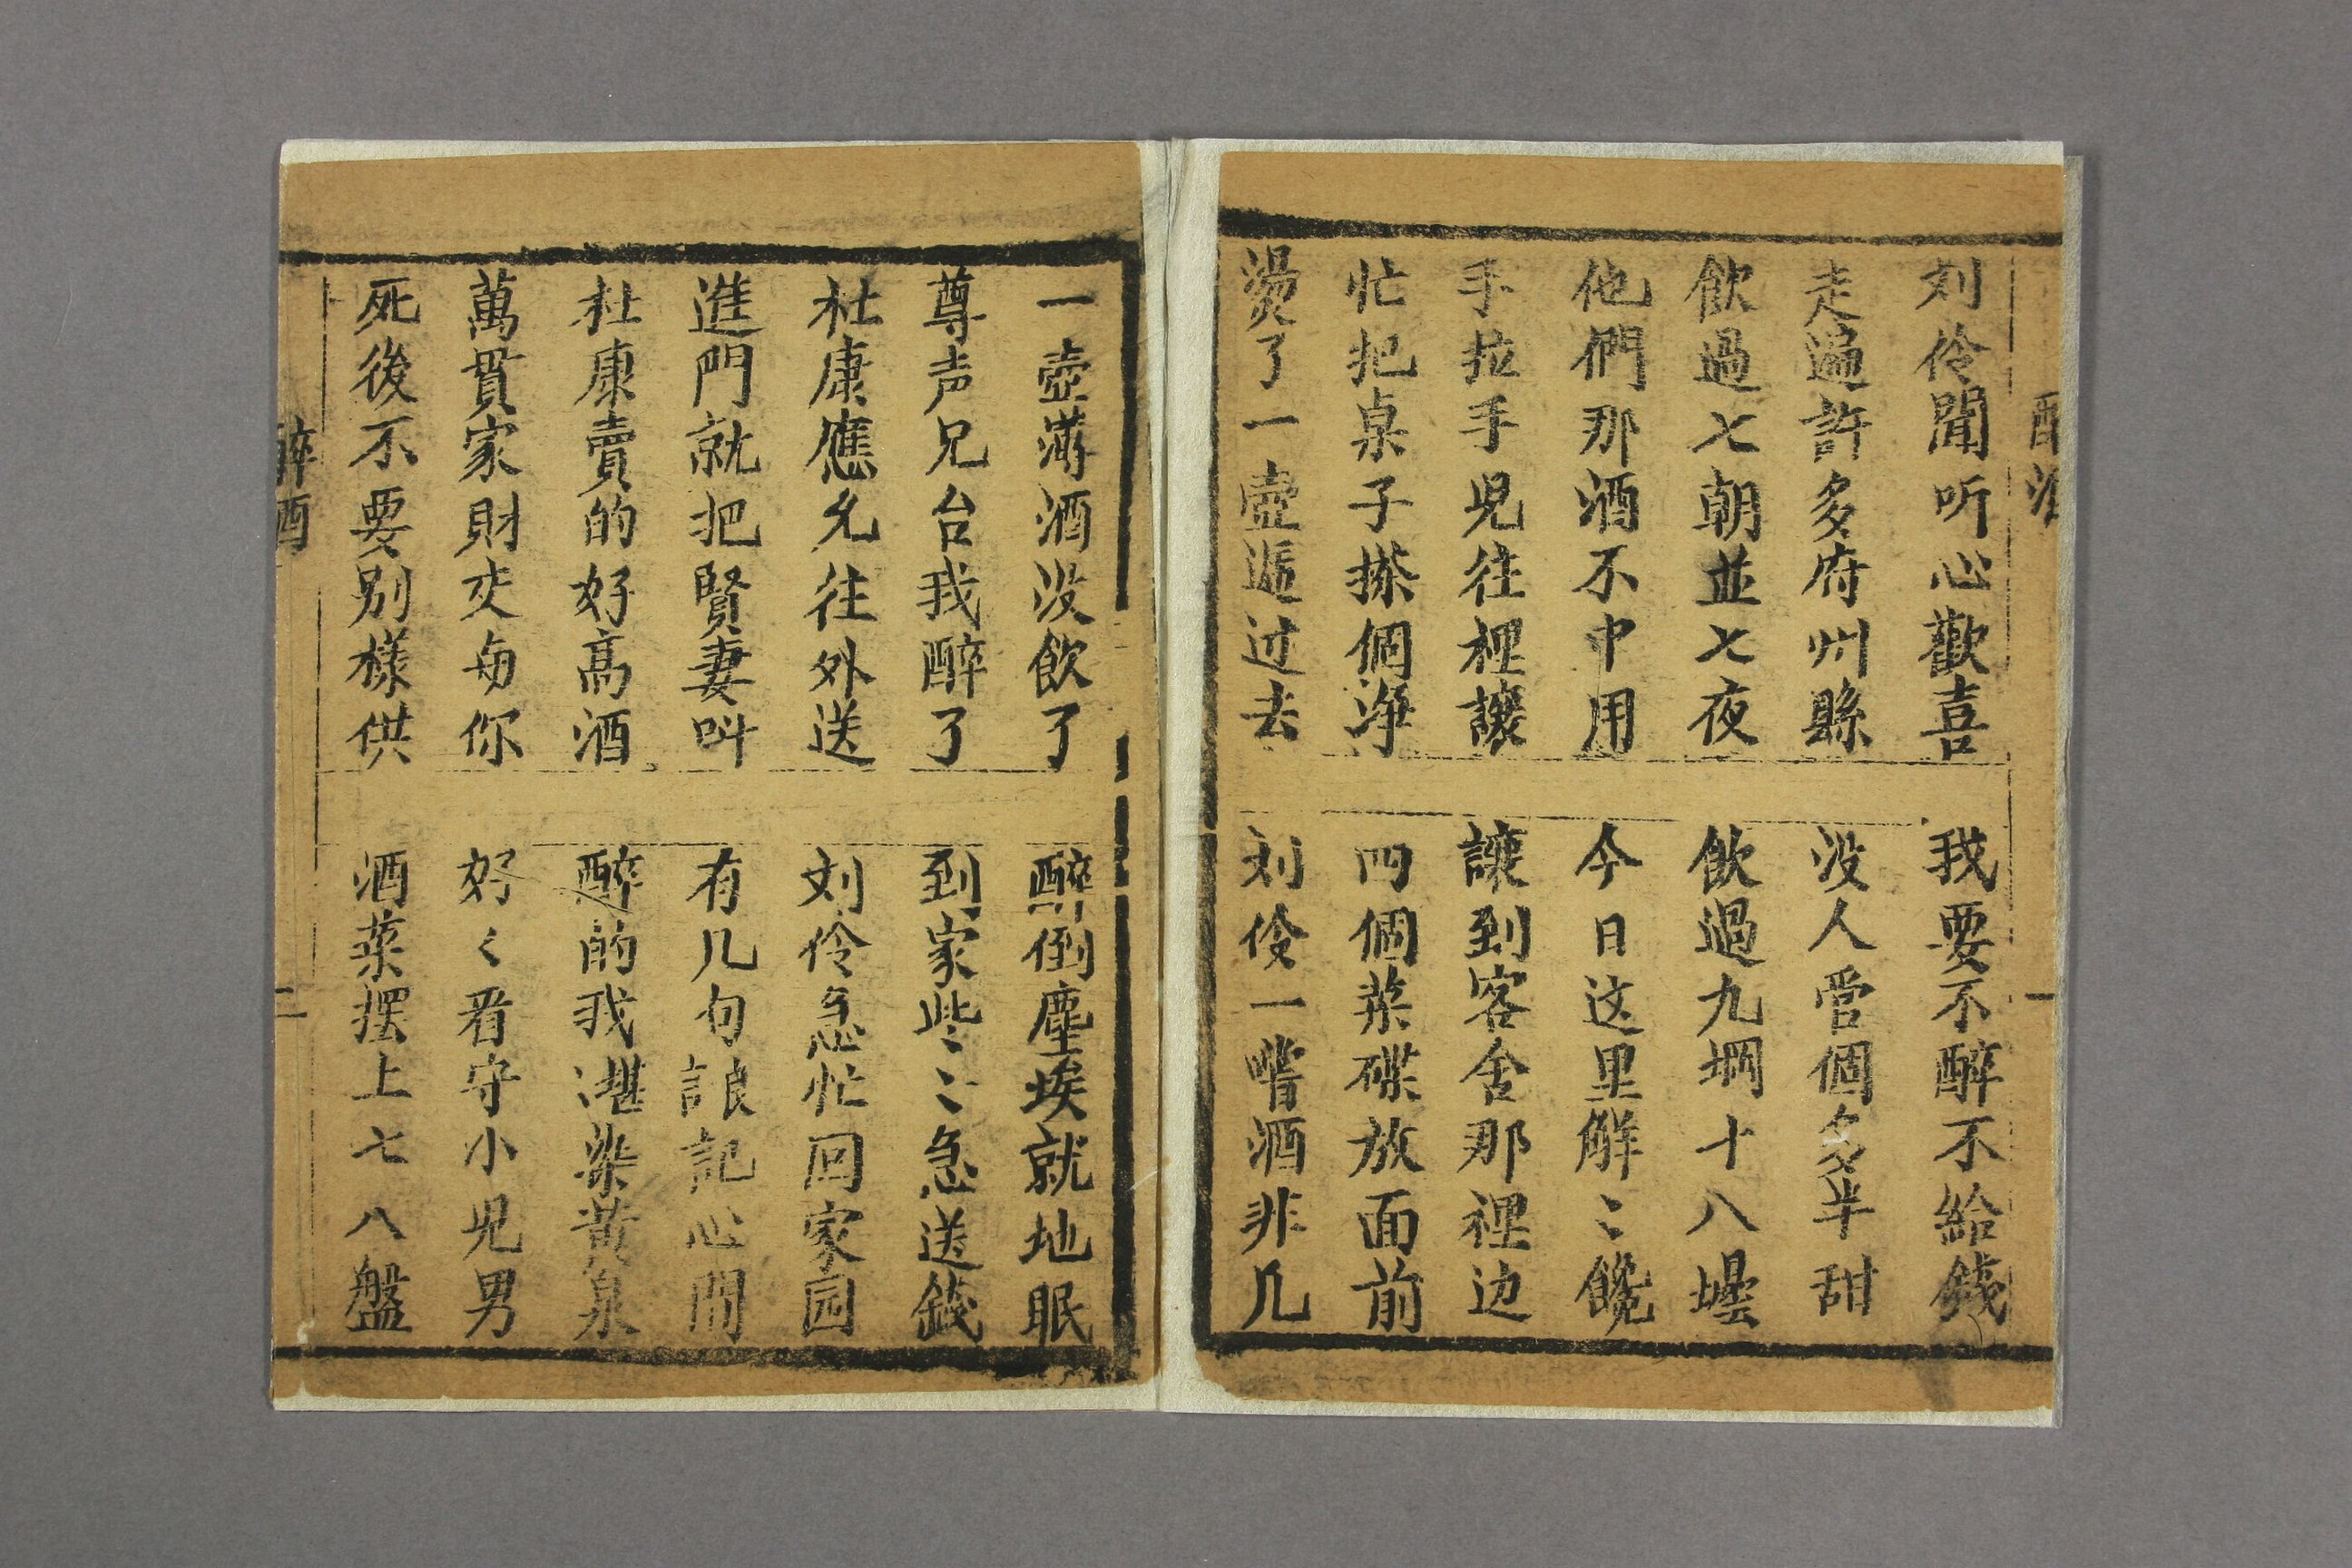 醉酒
一
刘伶聞听心歡喜
我要不醉不給錢
走遍許多府州縣
没人嘗個多半甜
飲過七朝並七夜
飲過九堈十八壜
他們那酒不中用
今日这里解〻饞
手拉手児往裡讓
讓到客舍那裡边
忙把桌子搽個净
四個菜碟放面前
燙了一壺遞过去
刘伶一嘴酒非凡
一壺薄酒没飲了
醉倒塵埃就地眠
尊声兄台我醉了
到家些〻急送錢
杜康應允往外送
刘伶急忙回家园
進門就把賢妻叫
有几句話記心間
杜康賣的好高酒
醉的我湛染黄泉
萬貫家財交与你
好〻看守小児男
死後不要别樣供
酒菜摆上七八盤
醉酒
二